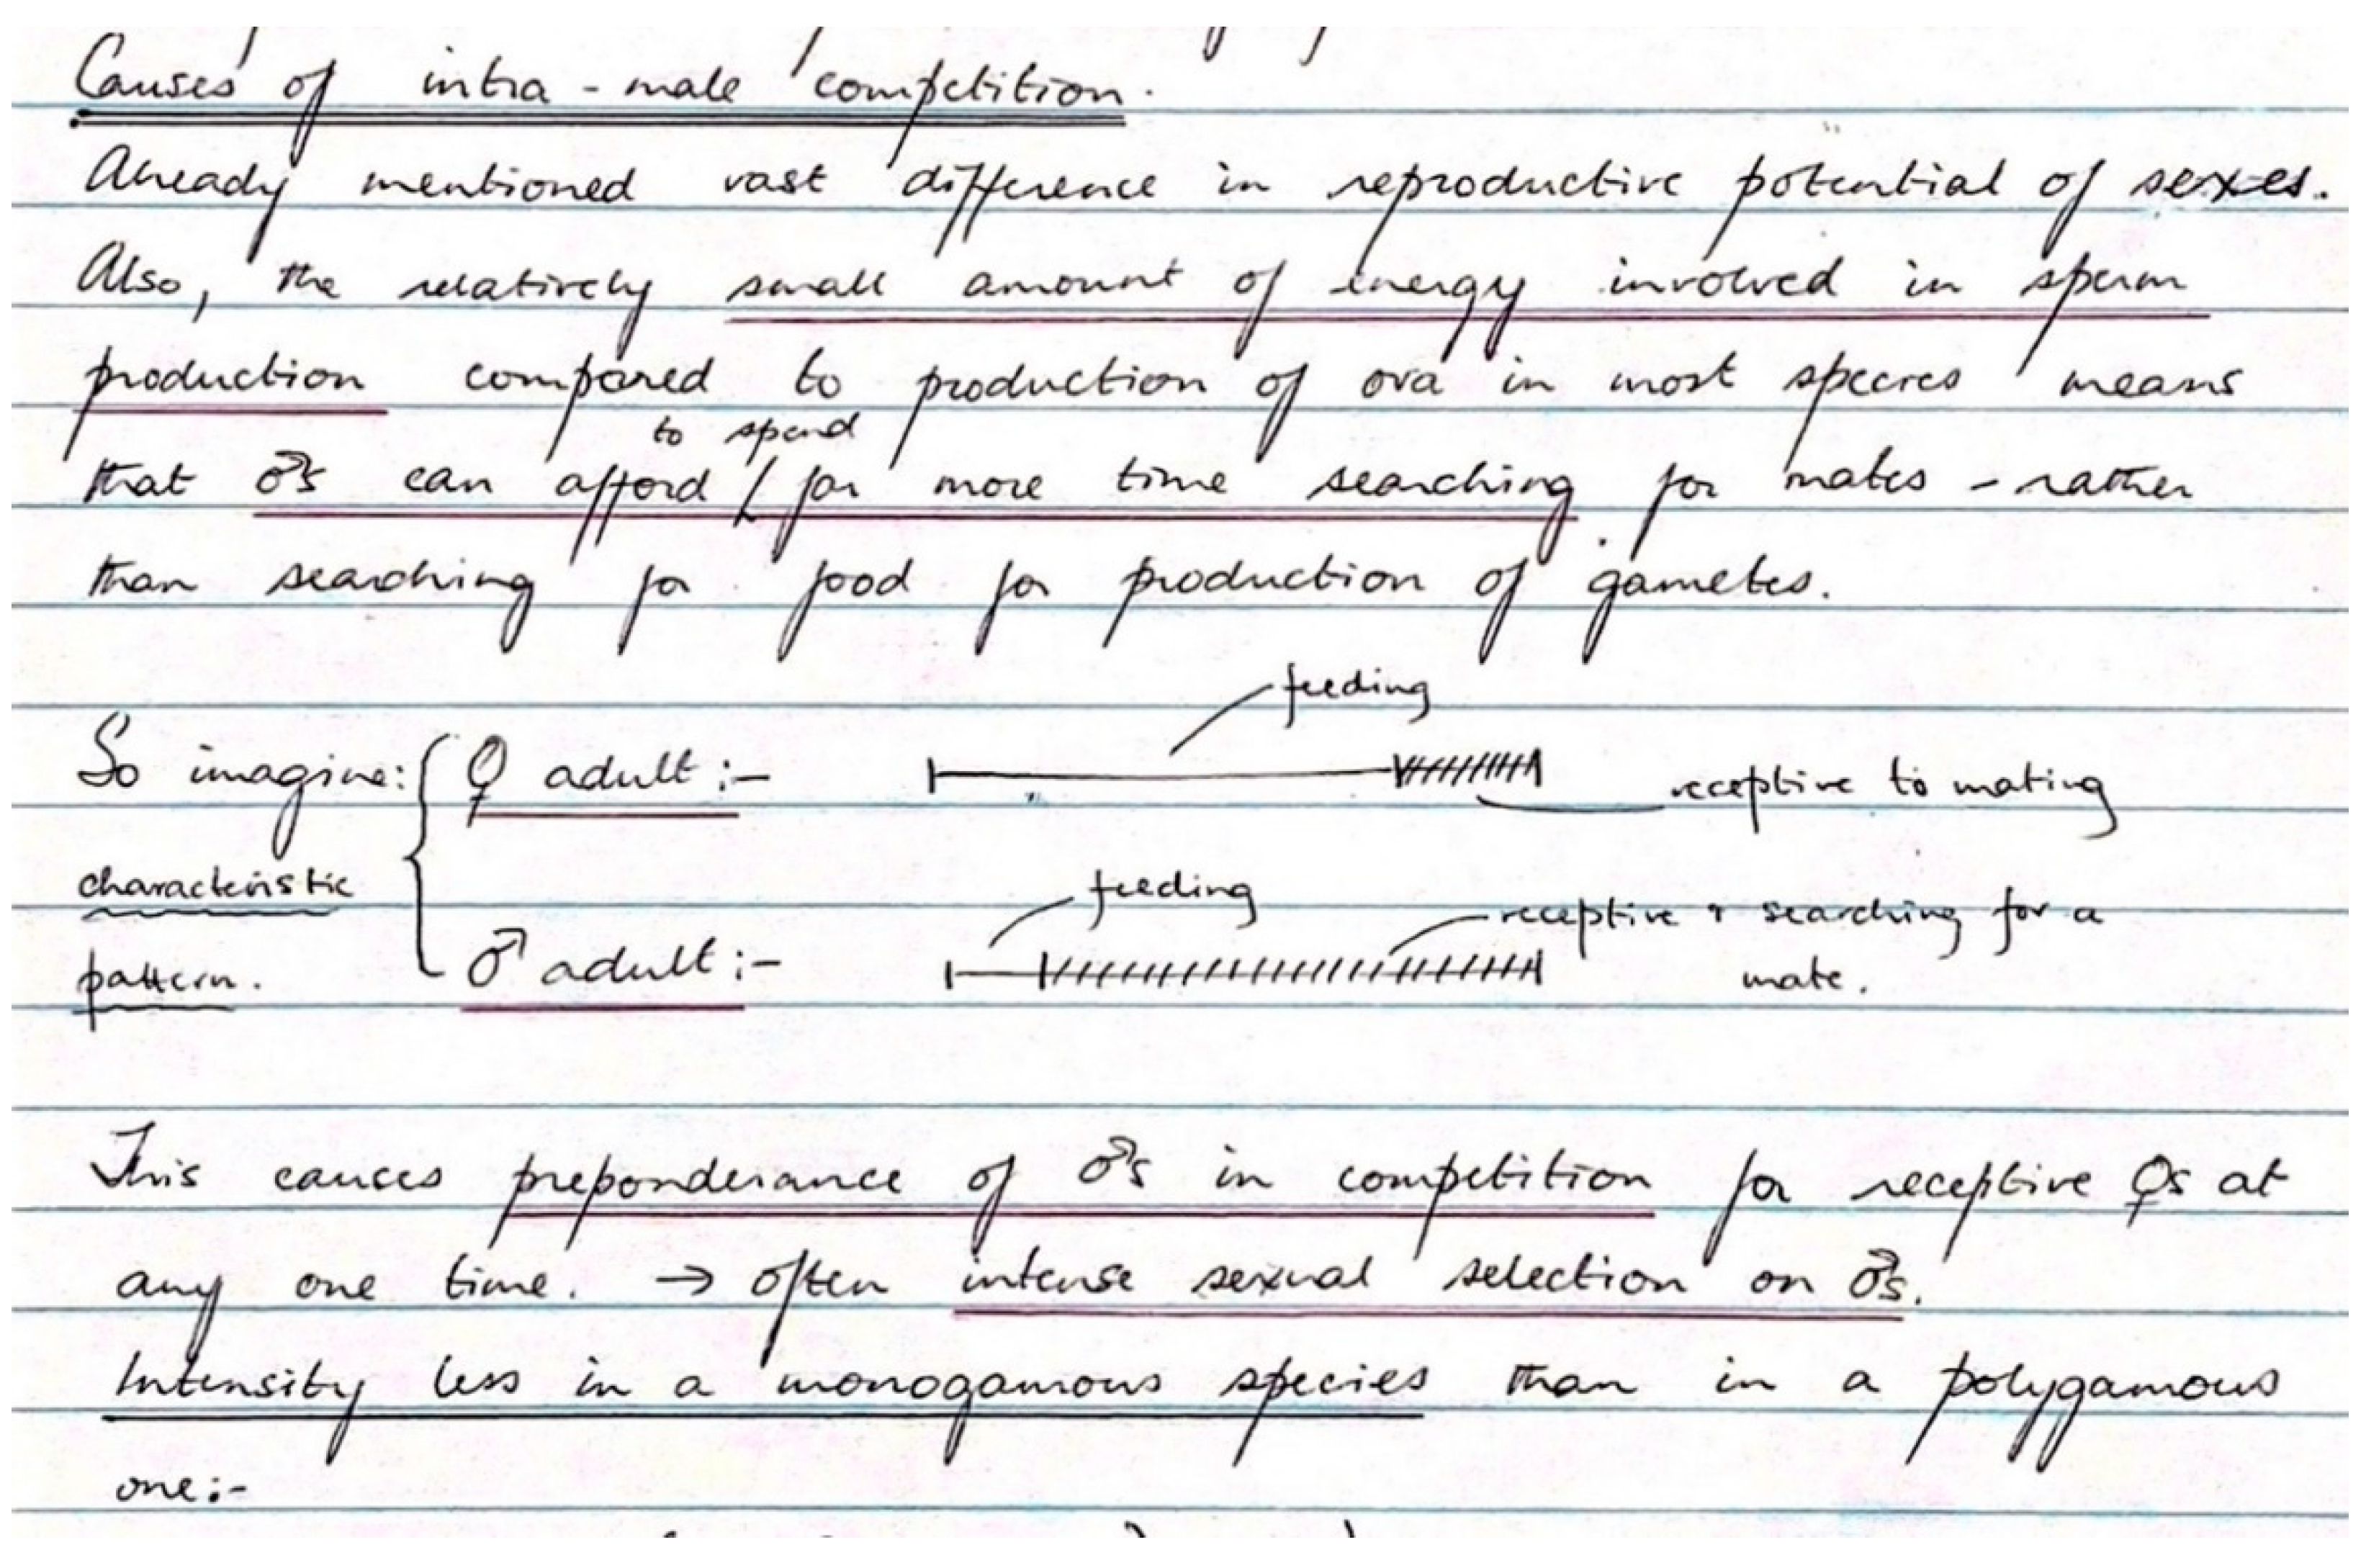 Causes of intra-male competition.
Already mentioned vast difference in reproductive potential of sexes.
Also, the relatively small amount of energy involved in sperm
production compared to production of ova in most species means
to spend
that ♂s can afford / far more time searching for mates - rather
than searching for food for production of gametes.
feeding
So imagine: { ♀ adult :-
receptive to mating
characteristic
feeding
receptive & searching for a
pattern.
♂ adult :-
mate.
This causes preponderance of ♂s in competition for receptive ♀s at
any one time. → often intense sexual selection on ♂s.
Intensity less in a monogamous species than in a polygamous
one:-